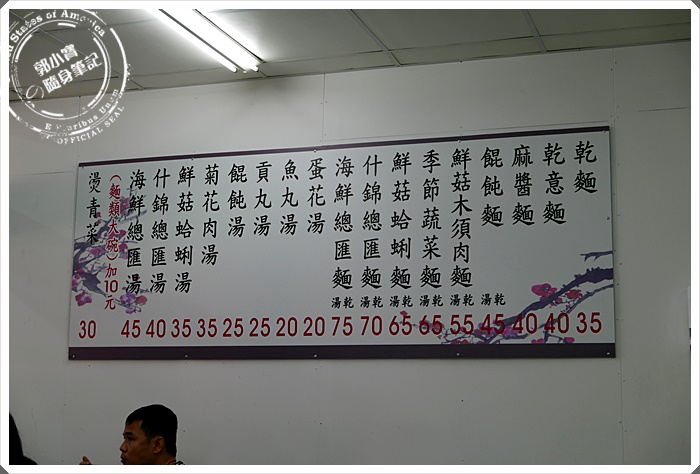 郭小寶
の隨身筆記
United States of America
E Pluribus Unum
OFFICIAL SEAL
乾麵 35
乾意麵 40
麻醬麵 40
餛飩麵 湯乾 45
鮮菇木須肉麵 湯乾 55
季節蔬菜麵 湯乾 65
鮮菇蛤蜊麵 湯乾 65
什錦總匯麵 湯乾 70
海鮮總匯麵 湯乾 75
蛋花湯 20
魚丸湯 20
貢丸湯 25
餛飩湯 25
菊花肉湯 35
鮮菇蛤蜊湯 35
什錦總匯湯 40
海鮮總匯湯 45
(麵類大碗)加10元
燙青菜 30